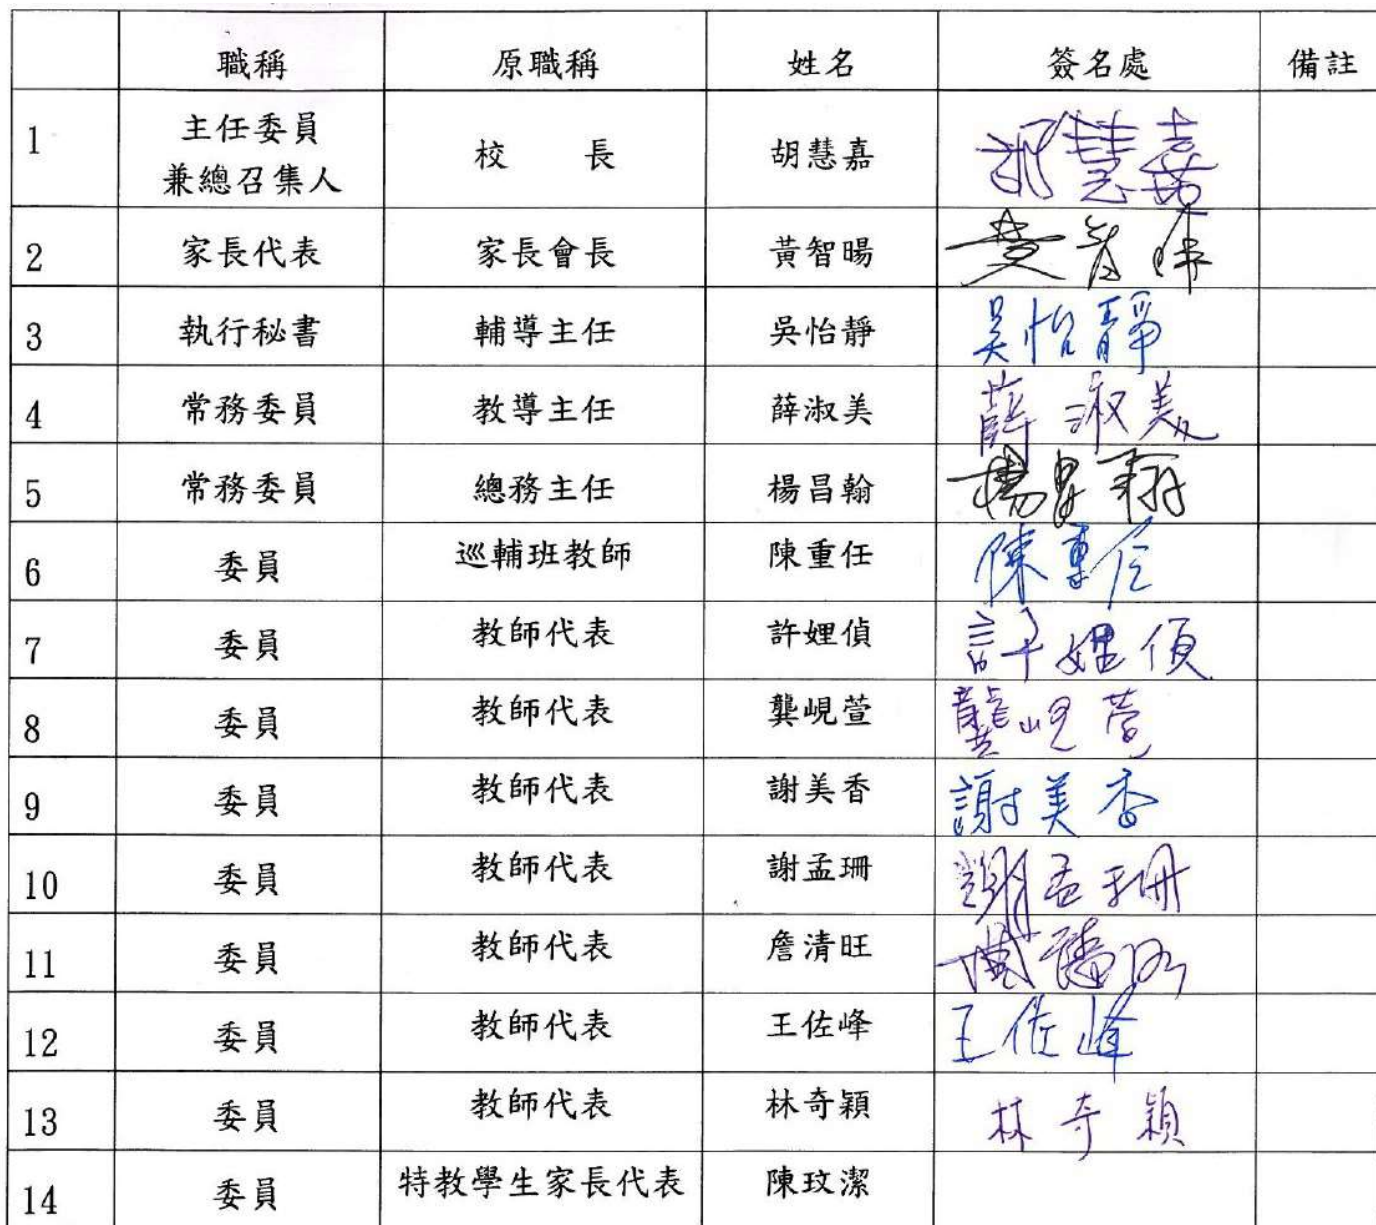 職稱 原職稱 姓名 簽名處 備註
1 主任委員 兼總召集人 校 長 胡慧嘉 胡慧嘉
2 家長代表 家長會長 黃智暘
3 執行秘書 輔導主任 吳怡靜 吳怡靜
4 常務委員 教導主任 薛淑美 薛淑美
5 常務委員 總務主任 楊昌翰 楊昌翰
6 委員 巡輔班教師 陳重任 陳重任
7 委員 教師代表 許娌偵 許娌偵
8 委員 教師代表 龔峴萱 龔峴萱
9 委員 教師代表 謝美香 謝美香
10 委員 教師代表 謝孟珊 謝孟珊
11 委員 教師代表 詹清旺
12 委員 教師代表 王佐峰 王佐峰
13 委員 教師代表 林奇穎 林奇穎
14 委員 特教學生家長代表 陳玟潔